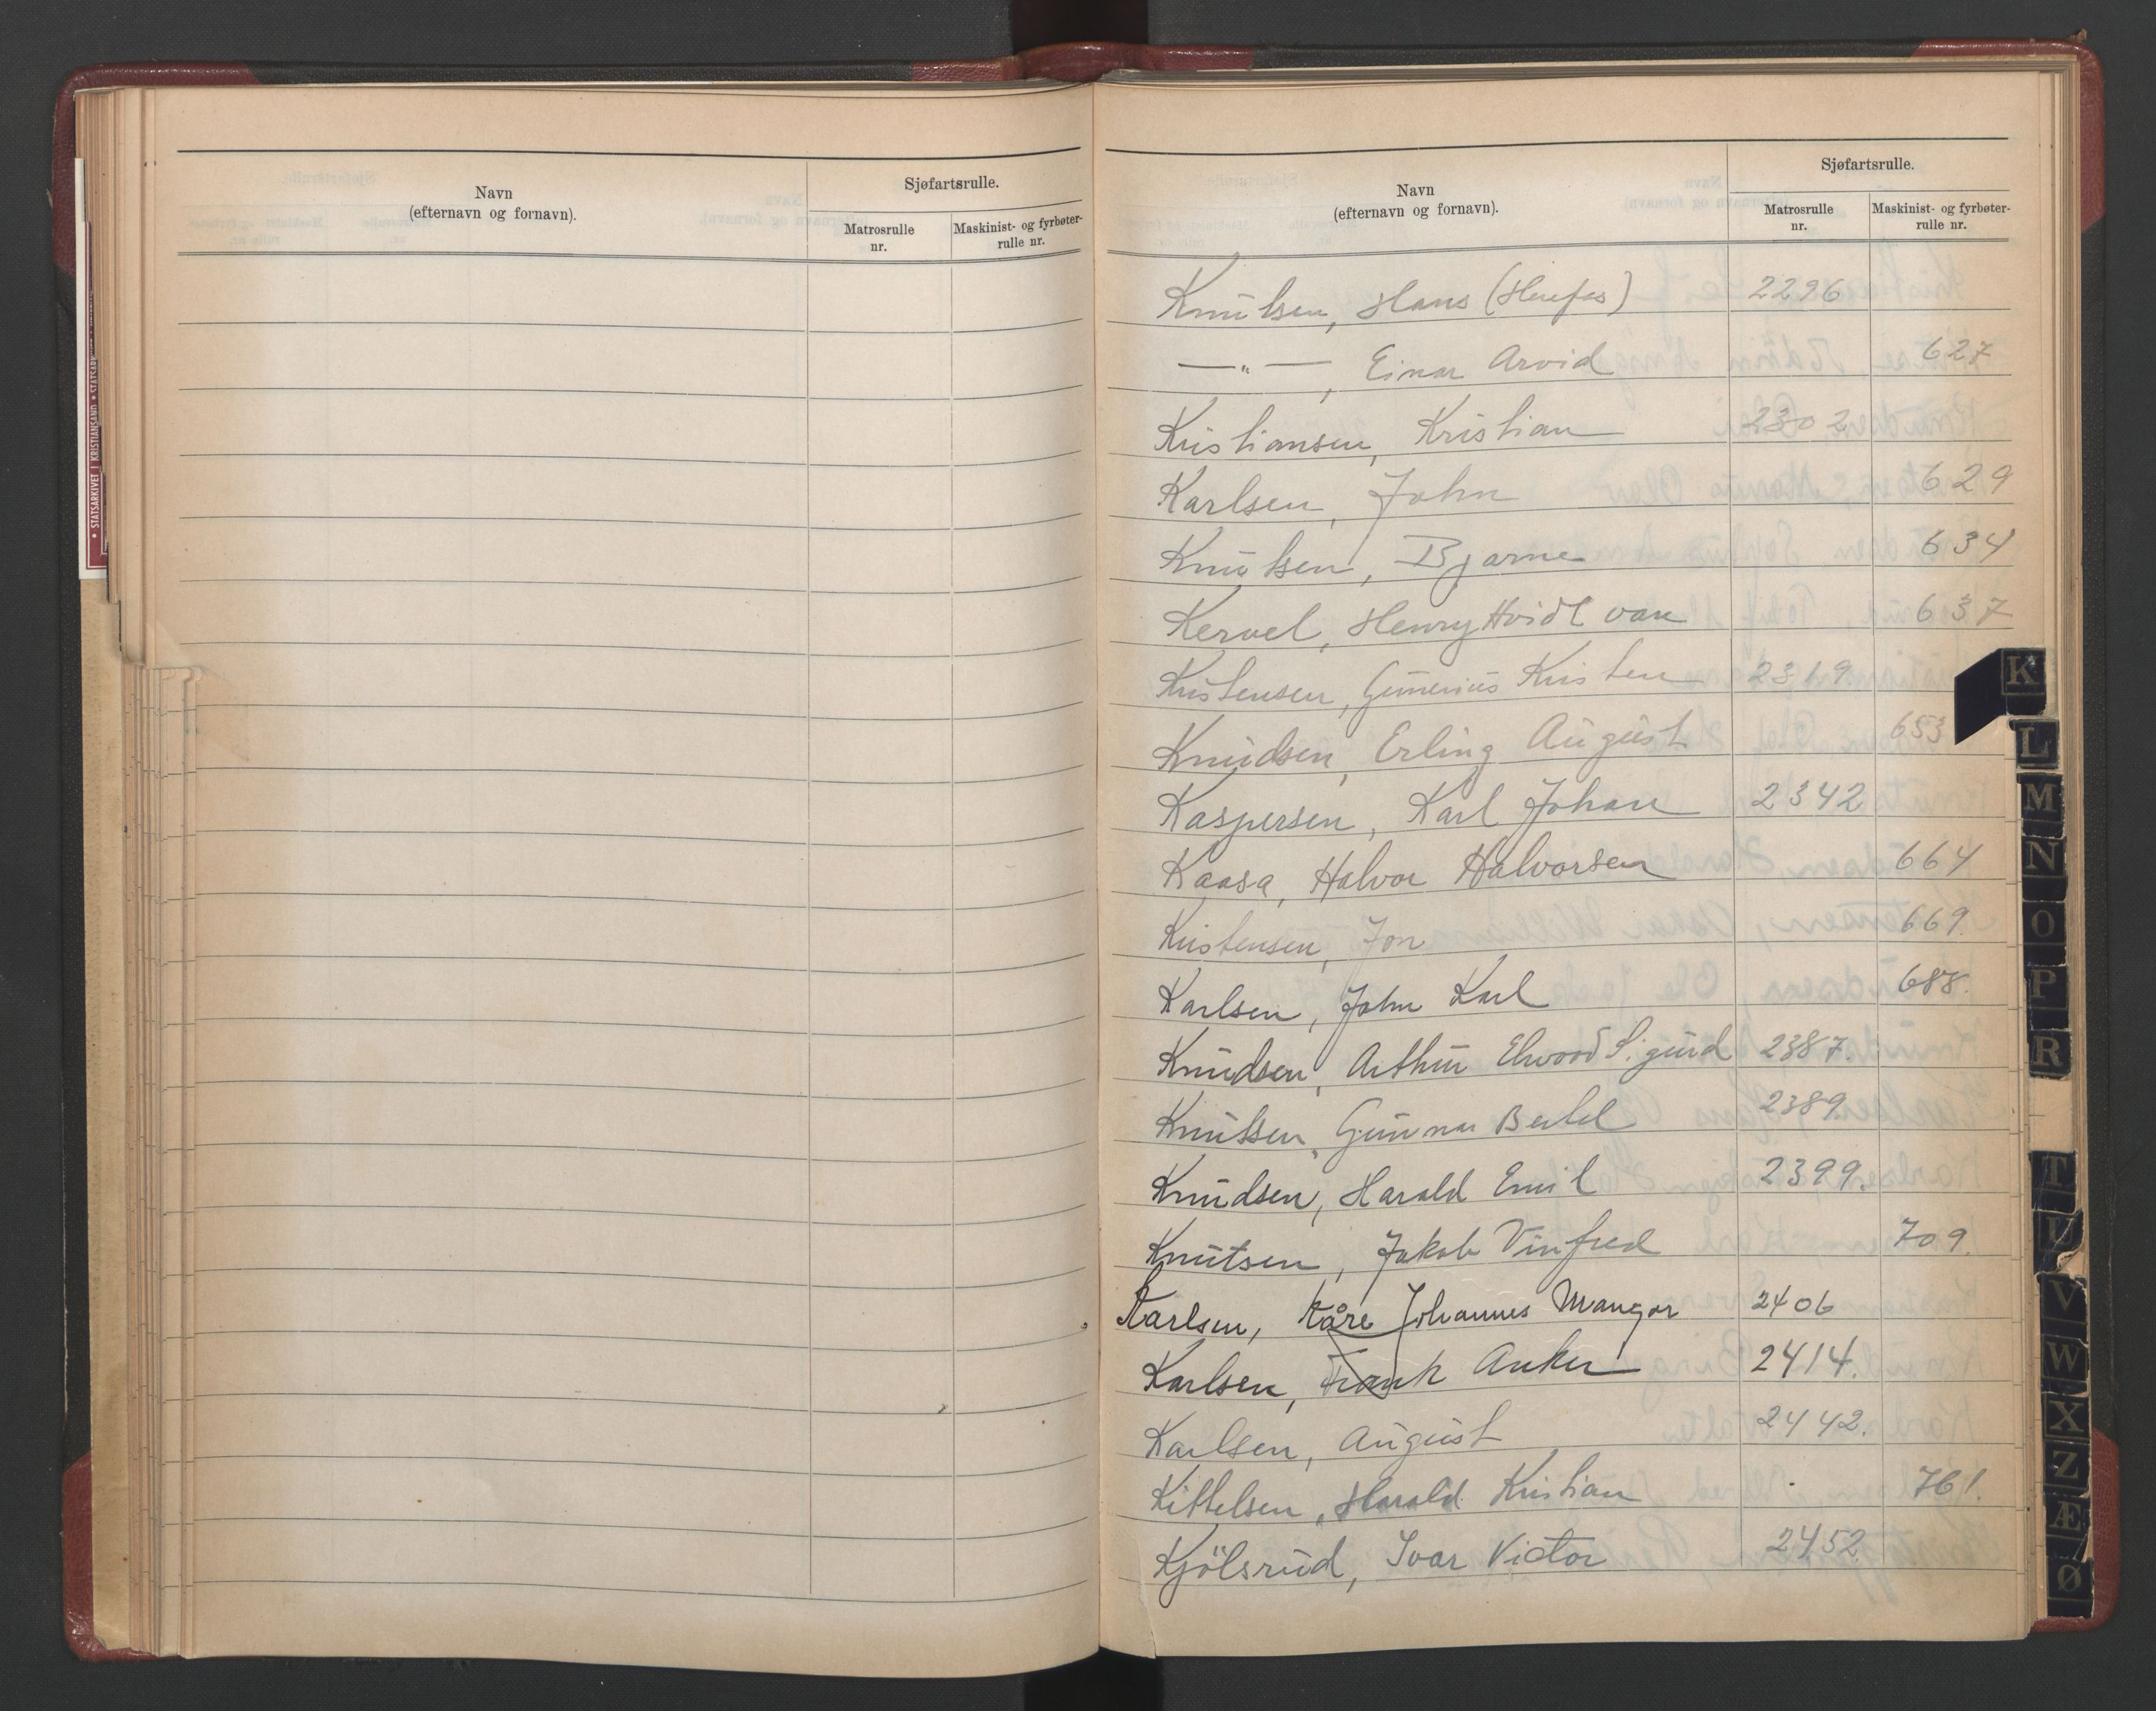 Navn
(efternavn og fornavn).
Sjøfartsrulle.
Matrosrulle
nr.
Maskinist- og fyrbøter-
rulle nr.
Navn
(efternavn og fornavn).
Sjøfartsrulle.
Matrosrulle
nr.
Maskinist- og fyrbøter-
rulle nr.
Knutsen, Hans 2296
—"—, Einar Arvid 627
Kristiansen, Kristian 2302
Karlsen, John 629
Knutsen, Bjarne 634
Kervel, Henry Hvidt van 637
Kristensen, Gunerius Kristen 2319
Knudsen, Erling August 653
Kaspersen, Karl Johan 2342
Kaasa, Halvor Halvorsen 664
Kristensen, Jon 669.
Karlsen, John Karl 688.
Knudsen, Arthur Elwood Sigurd 2387.
Knutsen, Gunnar Bertel 2389
Knudsen, Harald Emil 2399.
Knutsen, Jakob Vinfred 709.
Karlsen, Kåre Johannes Mangor 2406
Karlsen, Frank Anker 2414.
Karlsen, August 2442.
Kittelsen, Harald Kristian 761.
Kjölsrud, Ivar Victor 2452
K
L
M
N
O
P
R
T
U
V
W
X
Z
Æ
Ø
STATSARKIVET I KRISTIANSAND